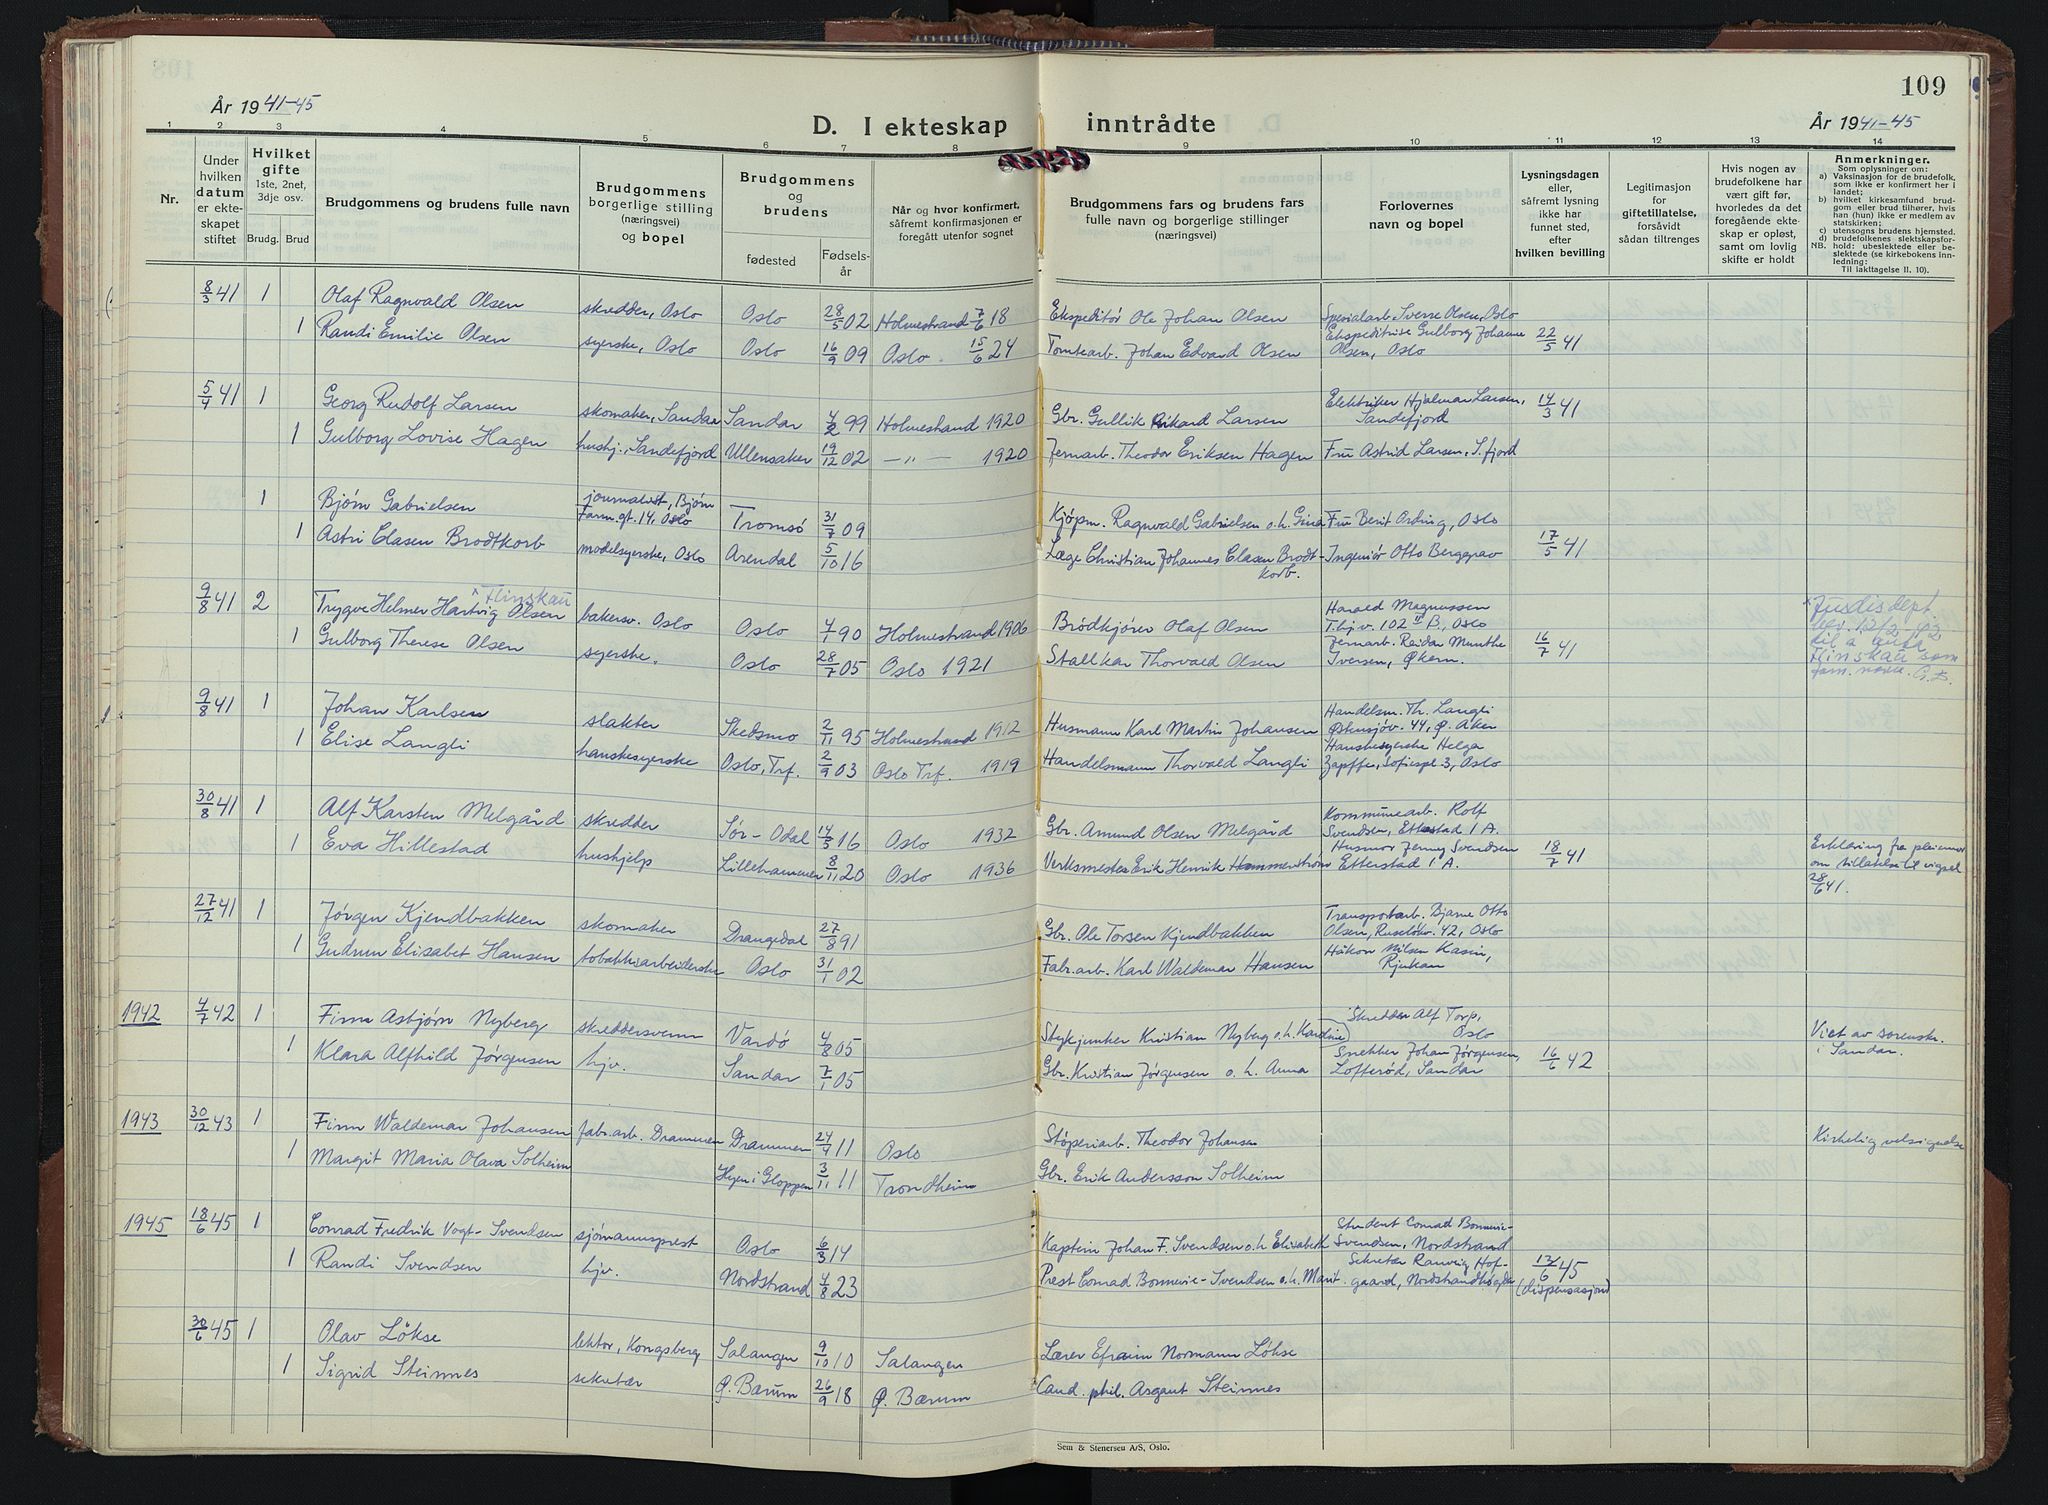 109
År 1941-45
D. I ekteskap inntrådte
År 1941-45
1 2 3 4 5 6 7 8 9 10 11 12 13 14
Nr.
Under hvilken datum er ekteskapet stiftet
Hvilket gifte 1ste, 2net, 3dje osv.
Brudg. Brud
Brudgommens og brudens fulle navn
Brudgommens borgerlige stilling (næringsvei) og bopel
Brudgommens og brudens
fødested
Fødselsår
Når og hvor konfirmert, såfremt konfirmasjonen er foregått utenfor sognet
Brudgommens fars og brudens fars fulle navn og borgerlige stillinger (næringsvei)
Forlovernes navn og bopel
Lysningsdagen eller, såfremt lysning ikke har funnet sted, efter hvilken bevilling
Legitimasjon for giftetillatelse, forsåvidt sådan tiltrenges
Hvis nogen av brudefolkene har vært gift før, hvorledes da det foregående ekteskap er opløst, samt om lovlig skifte er holdt
Anmerkninger.
Som oplysninger om:
a) Vaksinasjon for de brudefolk, som ikke er konfirmert her i landet;
b) hvilket kirkesamfund brudgom eller brud tilhører, hvis han (hun) ikke er medlem av statskirken;
c) utensogns brudens hjemsted.
d) brudefolkenes slektskapsforhold: ubeslektede eller beslektede (se kirkebokens Innledning:
NB. Til iakttagelse II. 10).
8/3 41 1 Olaf Ragnvald Olsen skredder, Oslo Oslo 28/5 02 Holmestrand 7/6 18 Ekspeditør Ole Johan Olsen Spesialarb. Sverre Olsen, Oslo
1 Randi Emilie Olsen syerske, Oslo Oslo 16/9 09 Oslo 15/6 24 Tomtearb. Johan Edvard Olsen Ekspeditrise Gulborg Johanne Olsen, Oslo 22/5 41
5/4 41 1 Georg Rudolf Larsen skomaker, Sandar Sandar 4/2 99 Holmestrand 1920 Gbr. Gullik Rikard Larsen Elektriker Hjalmar Larsen, Sandefjord 14/3 41
1 Gulborg Lovise Hagen hushj., Sandefjord Ullensaker 19/12 02 — " — 1920 Jernarb. Theodor Eriksen Hagen Fru Astrid Larsen, S.fjord
1 Bjørn Gabrielsen journalist, Bjørn Farm.gt. 14, Oslo Tromsø 31/7 09 Kjøpm. Ragnvald Gabrielsen o.h. Gina Fru Berit Ording, Oslo
1 Astri Clasen Brodtkorb modelsyerske, Oslo Arendal 5/10 16 Læge Christian Johannes Clasen Brodtkorb. Ingeniør Otto Berggrav 17/5 41
9/8 41 2 Trygve Helmer Hartvig Olsen x Flinskau bakersv. Oslo Oslo 4/1 90 Holmestrand 1906 Brødkjører Olaf Olsen Harald Magnussen T.hj.v. 102 II B., Oslo
1 Gulborg Therese Olsen syerske. Oslo 28/7 05 Oslo 1921 Stallkar Thorvald Olsen Jernarb. Reidar Munthe Iversen, Økern. 16/7 41
x Jusdisdept. bev. 13/2 42 til å anta Flinskau som fam. navn. G.B.
9/8 41 1 Johan Karlsen slakter Skedsmo 2/11 95 Holmestrand 1912 Husmann Karl Martin Johansen Handelsm. Th. Langli Østensjøv. 44, Ø. Aker
1 Elise Langli hanskesyerske Oslo, Trf. 2/9 03 Oslo Trf. 1919 Handelsmann Thorvald Langli Hanskesyerske Helga Zapffe, Sofiespl 3, Oslo
30/8 41 1 Alf Karsten Melgård skredder Sør-Odal 14/5 16 Oslo 1932 Gbr. Amund Olsen Melgård Kommunearb. Rolf Svendsen, Etterstad 1 A.
1 Eva Hillestad hushjelp Lillehammer 8/11 20 Oslo 1936 Verksmester Erik Henrik Hammerstrøm Husmor Jenny Svendsen Etterstad 1 A. 18/7 41 Erklæring fra pleiemor om tillatelse til vigsel 28/6 41.
27/12 41 1 Jørgen Kjendbakken skomaker Drangedal 27/8 91 Gbr. Ole Torsen Kjendbakken Transportarb. Bjarne Otto Olsen, Ruseløkv. 42, Oslo
1 Gudrun Elisabet Hansen tobakkarbeiderske Oslo 31/1 02 Fabr.arb. Karl Waldemar Hansen Håkon Nilsen Kasin, Rjukan
1942 4/7 42 1 Finn Asbjørn Nyberg skreddersvenn Vardø 4/8 05 Stykjunker Kristian Nyberg o.h. Karoline Skredder Alf Torp, Oslo Viet av sorenskr. i Sandar.
1 Klara Alfhild Jørgensen hjv. Sandar 7/1 05 Gbr. Kristian Jørgensen o.h. Anna Snekker Johan Jørgensen, Lofterød, Sandar 16/6 42
1943 30/12 43 1 Finn Waldemar Johansen fabr.arb. Drammen Drammen 24/4 11 Oslo Støperiarb. Theodor Johansen Kirkelig velsignelse
1 Margit Maria Olava Solheim Hyen i Gloppen 3/11 11 Trondheim Gbr. Erik Andersson Solheim
1945 18/6 45 1 Conrad Fredrik Vogt-Svendsen sjømannsprest Oslo 6/3 14 Kaptein Johan F. Svendsen o.h. Elisabeth Student Conrad Bonnevie-Svendsen, Nordstrand
1 Randi Svendsen hjv. Nordstrand 4/8 23 Prest Conrad Bonnevie-Svendsen o.h. Marit Sekretær Ranveig Hofgaard, Nordstrandhøgda 12/6 45 (dispensasjon)
30/6 45 1 Olav Løkse lektor, Kongsberg Salangen 9/10 10 Salangen Lærer Efraim Normann Løkse
1 Sigrid Steinnes sekretær Ø. Bærum 26/9 18 Ø. Bærum Cand. phil. Asgaut Steinnes
Sem & Stenersen A/S, Oslo.